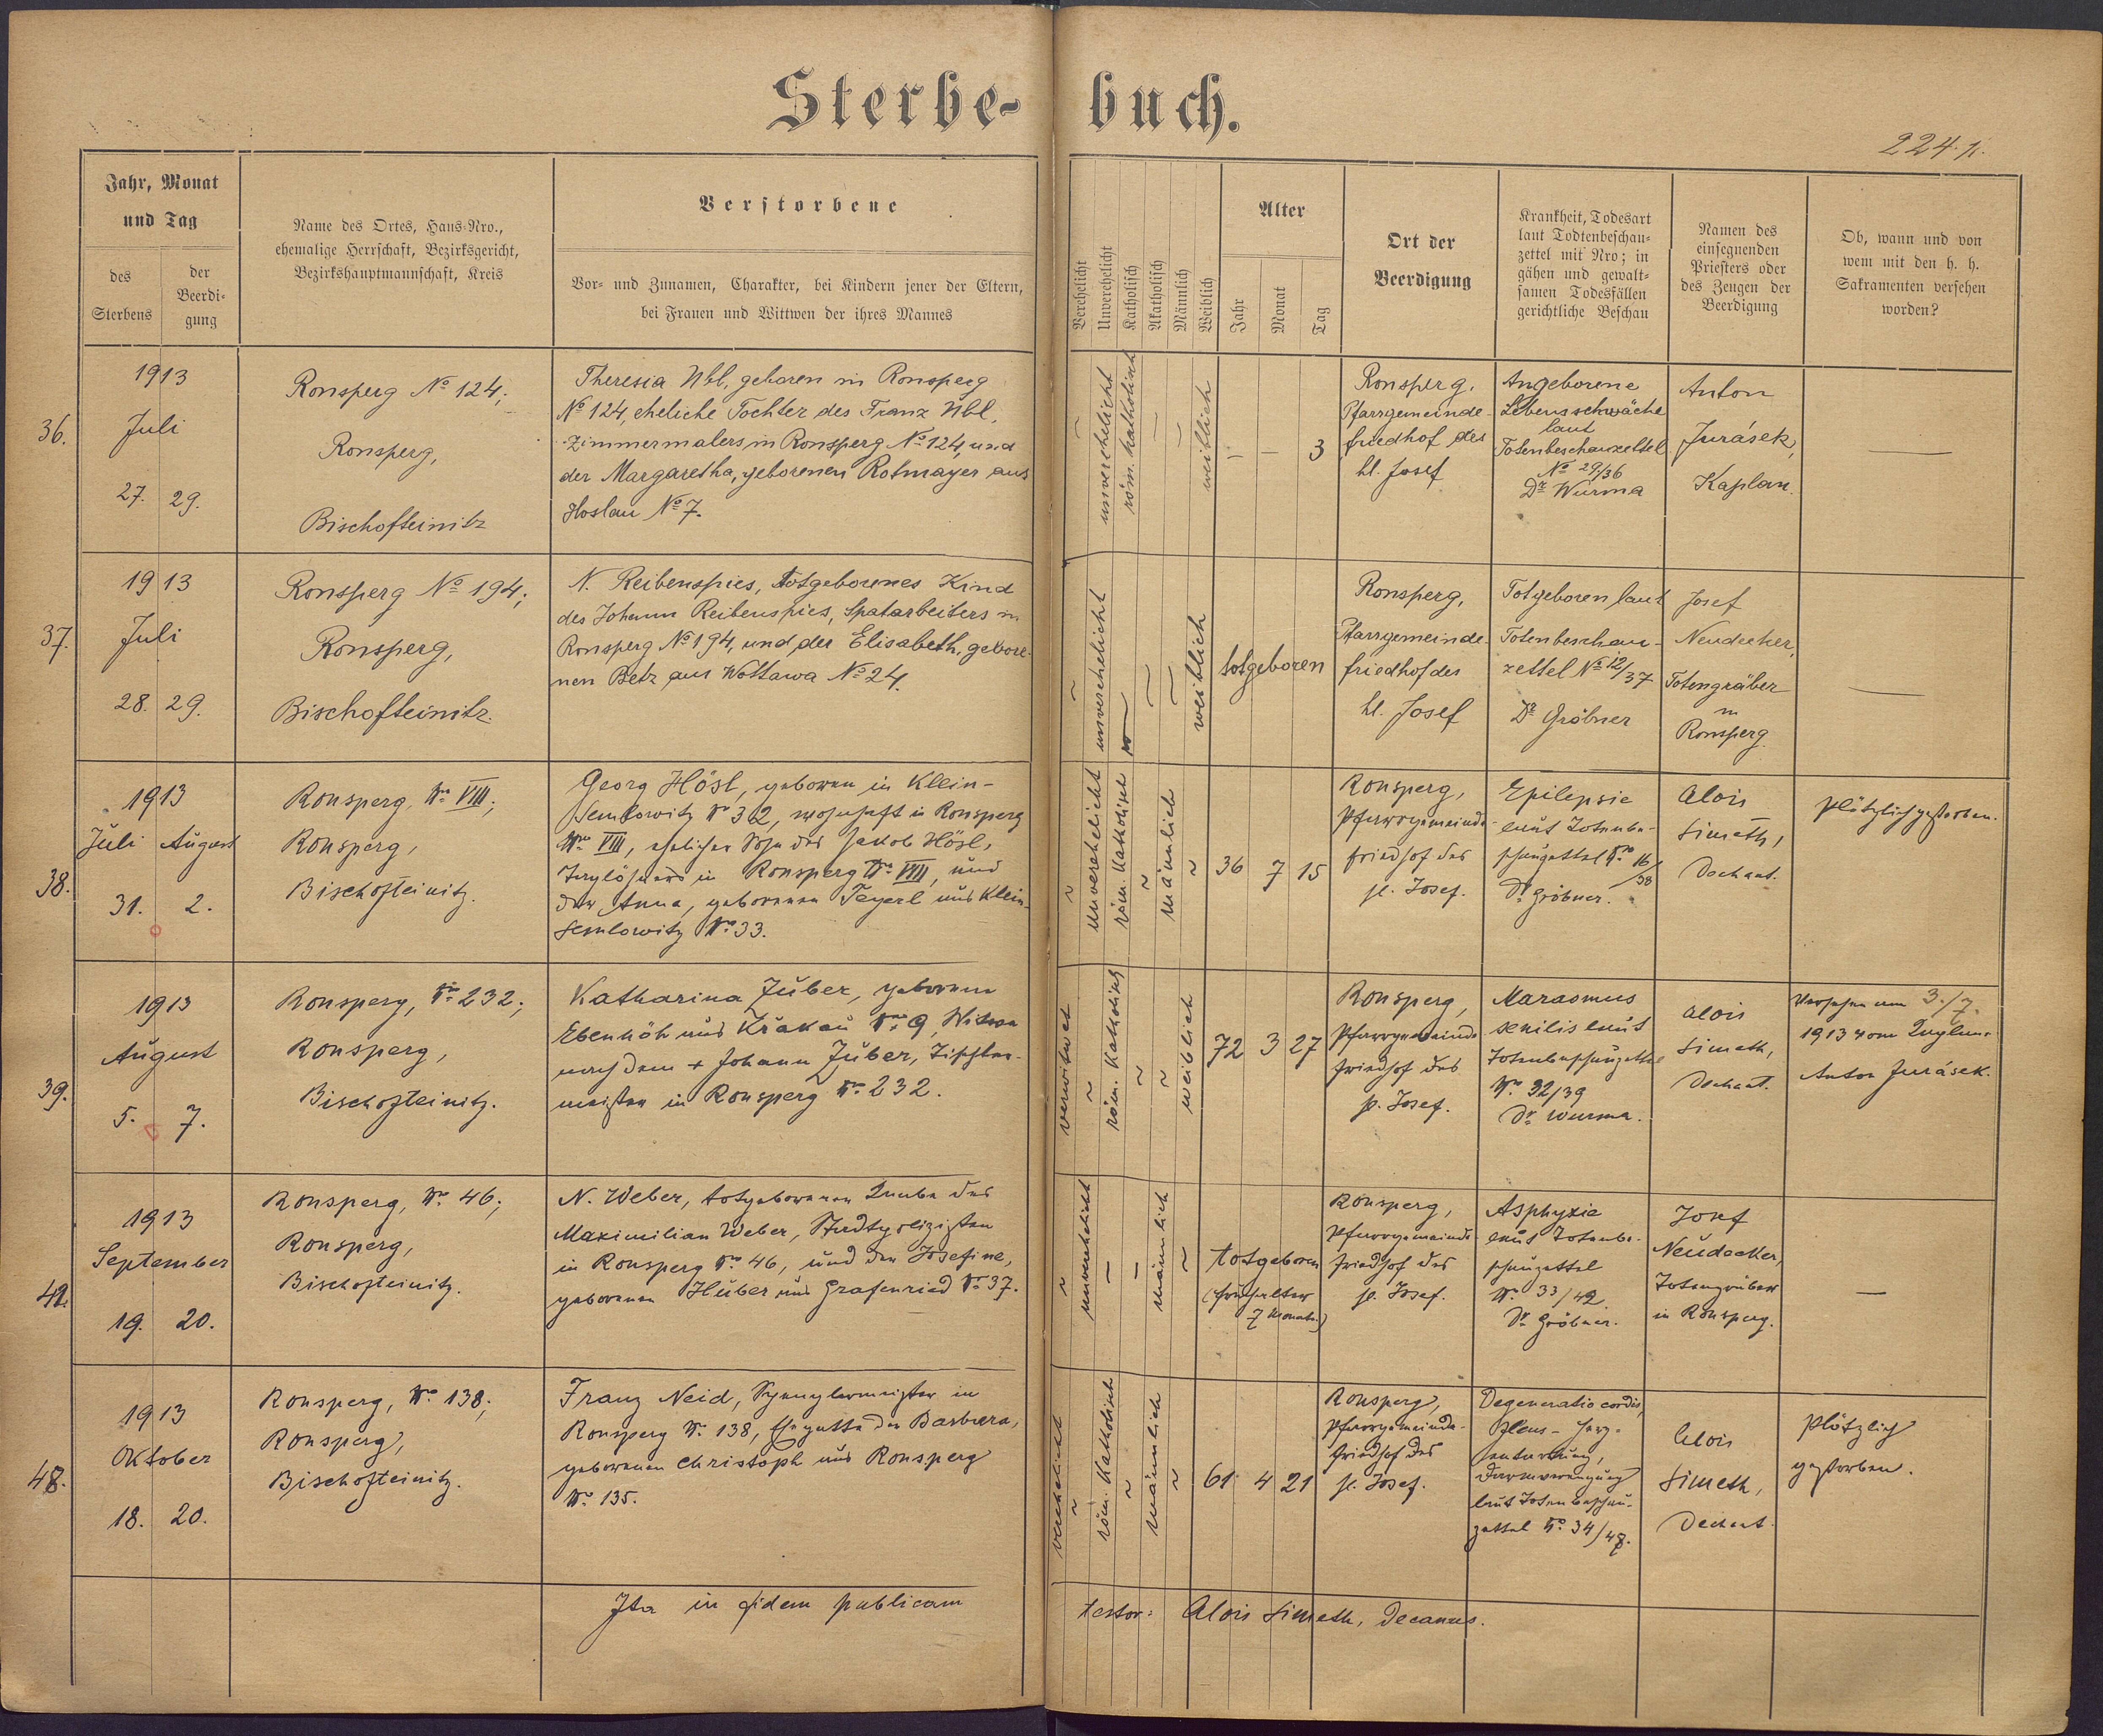 Sterbe-buch.
224. p.
Jahr, Monat
und Tag
des
Sterbens
der
Beerdi-
gung
Name des Ortes, Haus-Nro.,
ehemalige Herrschaft, Bezirksgericht,
Bezirkshauptmannschaft, Kreis
Verstorbene
Vor- und Zunamen, Charakter, bei Kindern jener der Eltern,
bei Frauen und Wittwen der ihres Mannes
Verehelicht
Unverehelicht
Katholisch
Akatholisch
Männlich
Weiblich
Alter
Jahr
Monat
Tag
Ort der
Beerdigung
Krankheit, Todesart
laut Todtenbeschau-
zettel mit Nro; in
gähen und gewalt-
samen Todesfällen
gerichtliche Beschau
Namen des
einsegnenden
Priesters oder
des Zeugen der
Beerdigung
Ob, wann und von
wem mit den h. h.
Sakramenten versehen
worden?
36.
1913
Juli
27. 29.
Ronsperg No 124;
Ronsperg,
Bischofteinitz
Theresia Ubl, geboren in Ronsperg
No 124, eheliche Tochter des Franz Ubl,
Zimmermalers in Ronsperg No 124, und
der Margaretha, geborenen Rotmayer aus
Hoslau No 7.
–
unverehelicht
röm. katholisch
–
–
weiblich
– – 3
Ronsperg.
Pfarrgemeinde-
friedhof des
hl. Josef
Angeborene
Lebensschwäche
laut
Totenbeschauzettel
No 29/36
Dr Wurma
Anton
Jurásek,
Kaplan.
—
37.
1913
Juli
28. 29.
Ronsperg No 194;
Ronsperg,
Bischofteinitz.
N. Reibenspies, totgeborenes Kind
des Johann Reibenspies, Spatarbeiters in
Ronsperg No 194, und der Elisabeth, gebore-
nen Betz aus Wottawa No 24.
unverehelicht
weiblich
totgeboren
Ronsperg,
Pfarrgemeinde-
friedhof des
hl. Josef
Totgeboren laut
Totenbeschau-
zettel No 12/37
Dr Gröbner
Josef
Neudecker,
Totengräber
in
Ronsperg.
—
38.
1913
Juli August
31. 2.
Ronsperg, No VIII;
Ronsperg,
Bischofteinitz.
Georg Hösl, geboren in Klein-
Semlowitz No 32, wohnhaft in Ronsperg
No VIII, ehelicher Sohn des Jakob Hösl,
Taglöhners in Ronsperg No VIII, und
der Anna, geborenen Feyerl aus Klein-
semlowitz No 33.
unverehelicht
röm. katholisch
männlich
36 7 15
Ronsperg,
Pfarrgemeinde-
friedhof des
hl. Josef.
Epilepsie
laut Totenbe-
schauzettel No 16/38
Dr Gröbner.
Alois
Simeth,
Dechant.
Plötzlich gestorben.
39.
1913
August
5. 7.
Ronsperg, No 232;
Ronsperg,
Bischofteinitz.
Katharina Zuber, geborene
Ebenhöh aus Krakau No 9, Witwe
nach dem + Johann Zuber, Tischler-
meister in Ronsperg No 232.
verwitwet
röm. katholisch
weiblich
72 3 27
Ronsperg,
Pfarrgemeinde
friedhof des
hl. Josef.
Marasmus
senilis laut
Totenbeschauzettel
No 32/39
Dr Wurma.
Alois
Simeth,
Dechant.
Versehen am 3./7.
1913 vom Kaplan
Anton Jurásek.
1913
September
19. 20.
Ronsperg, No 46;
Ronsperg,
Bischofteinitz.
N. Weber, totgeborener Knabe des
Maximilian Weber, Stadtpolizisten
in Ronsperg No 46, und der Josefine,
geborenen Huber aus Grafenried No 37.
unverehelicht
–
–
männlich
totgeboren
(Fruchtalter
7 Monate.)
Ronsperg,
Pfarrgemeinde-
friedhof des
hl. Josef.
Asphyxie
laut Totenbe-
schauzettel
Dr Gröbner.
Josef
Neudecker,
Totengräber
in Ronsperg.
—
1913
Oktober
18. 20.
Ronsperg, No 138;
Ronsperg,
Bischofteinitz.
Franz Neid, Spenglermeister in
Ronsperg No 138, Ehegatte der Barbara,
geborenen Christoph aus Ronsperg
No 135.
verehelicht
röm. katholisch
männlich
61 4 21
Ronsperg,
Pfarrgemeinde-
friedhof des
hl. Josef.
Degeneratio cordis,
Ileus - Herz-
entartung,
Darmverengung
laut Totenbeschau-
zettel
Alois
Simeth,
Dechant.
Plötzlich
gestorben.
Ita in fidem publicam
testor: Alois Simeth, Decanus.